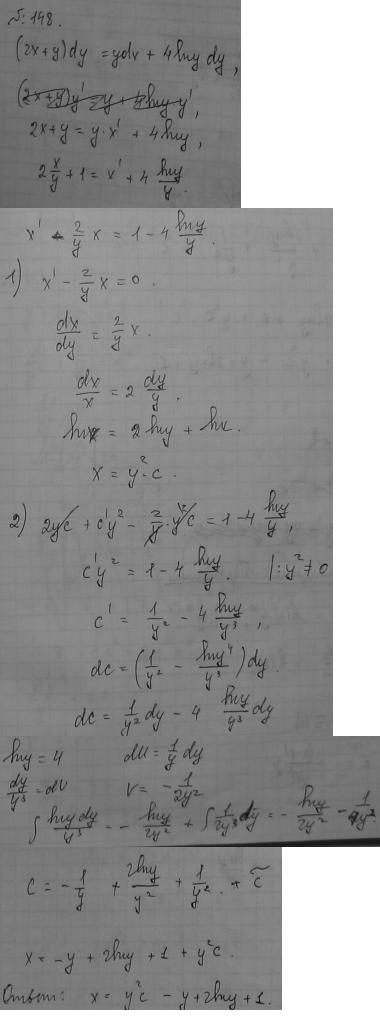 № 148.
(2x+y)dy = ydx + 4lny dy,
(2x+y)y' = y + 4lny·y',
2x+y = y·x' + 4lny,
2 x/y + 1 = x' + 4 lny/y.
x' - 2/y x = 1 - 4 lny/y.
1) x' - 2/y x = 0.
dx/dy = 2/y x.
dx/x = 2 dy/y.
lnx = 2lny + lnc.
x = y²·c.
2) 2yc + c'y² - 2/y·y²c = 1 - 4 lny/y,
c'y² = 1 - 4 lny/y. |: y² ≠ 0
c' = 1/y² - 4 lny/y³,
dc = (1/y² - lny⁴/y³)dy.
dc = 1/y² dy - 4 lny/y³ dy
lny = u du = 1/y dy
dy/y³ = dv v = -1/2y²
∫ lny dy/y³ = - lny/2y² + ∫ 1/2y³ dy = - lny/2y² - 1/4y².
c = - 1/y + 2lny/y² + 1/y² + c̃
x = -y + 2lny + 1 + y²c.
Ответ: x = y²c - y + 2lny + 1.